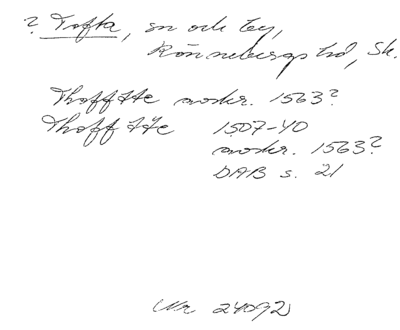 ? Tofta, sn och by,
Rönnebergs hd, Sk.
Thoffte avskr. 1563?
Thoffte 1507-40
avskr. 1563?
DAB s. 21
Nr 24092